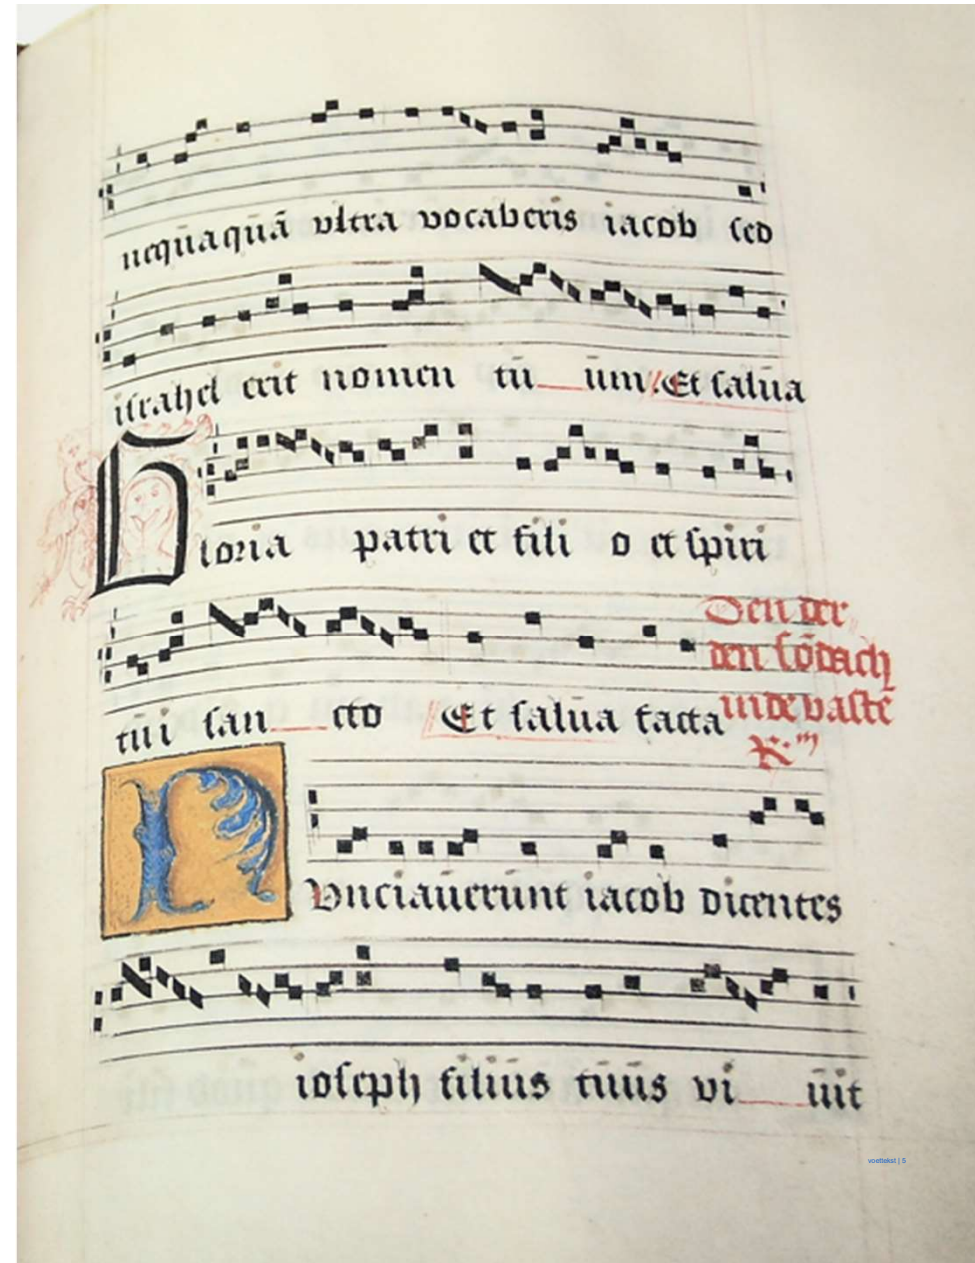 neqūaquā vltra vocaberis iacob sed
israhel erit nomen tū um. Et salua
Gloria patri et fili o et spiri
tui san cto Et salua facta
Den der
den sōdach
in de vastē
R. m
Nunciauerunt iacob dicentes
ioseph filius tuus vi uit
voettekst | 5